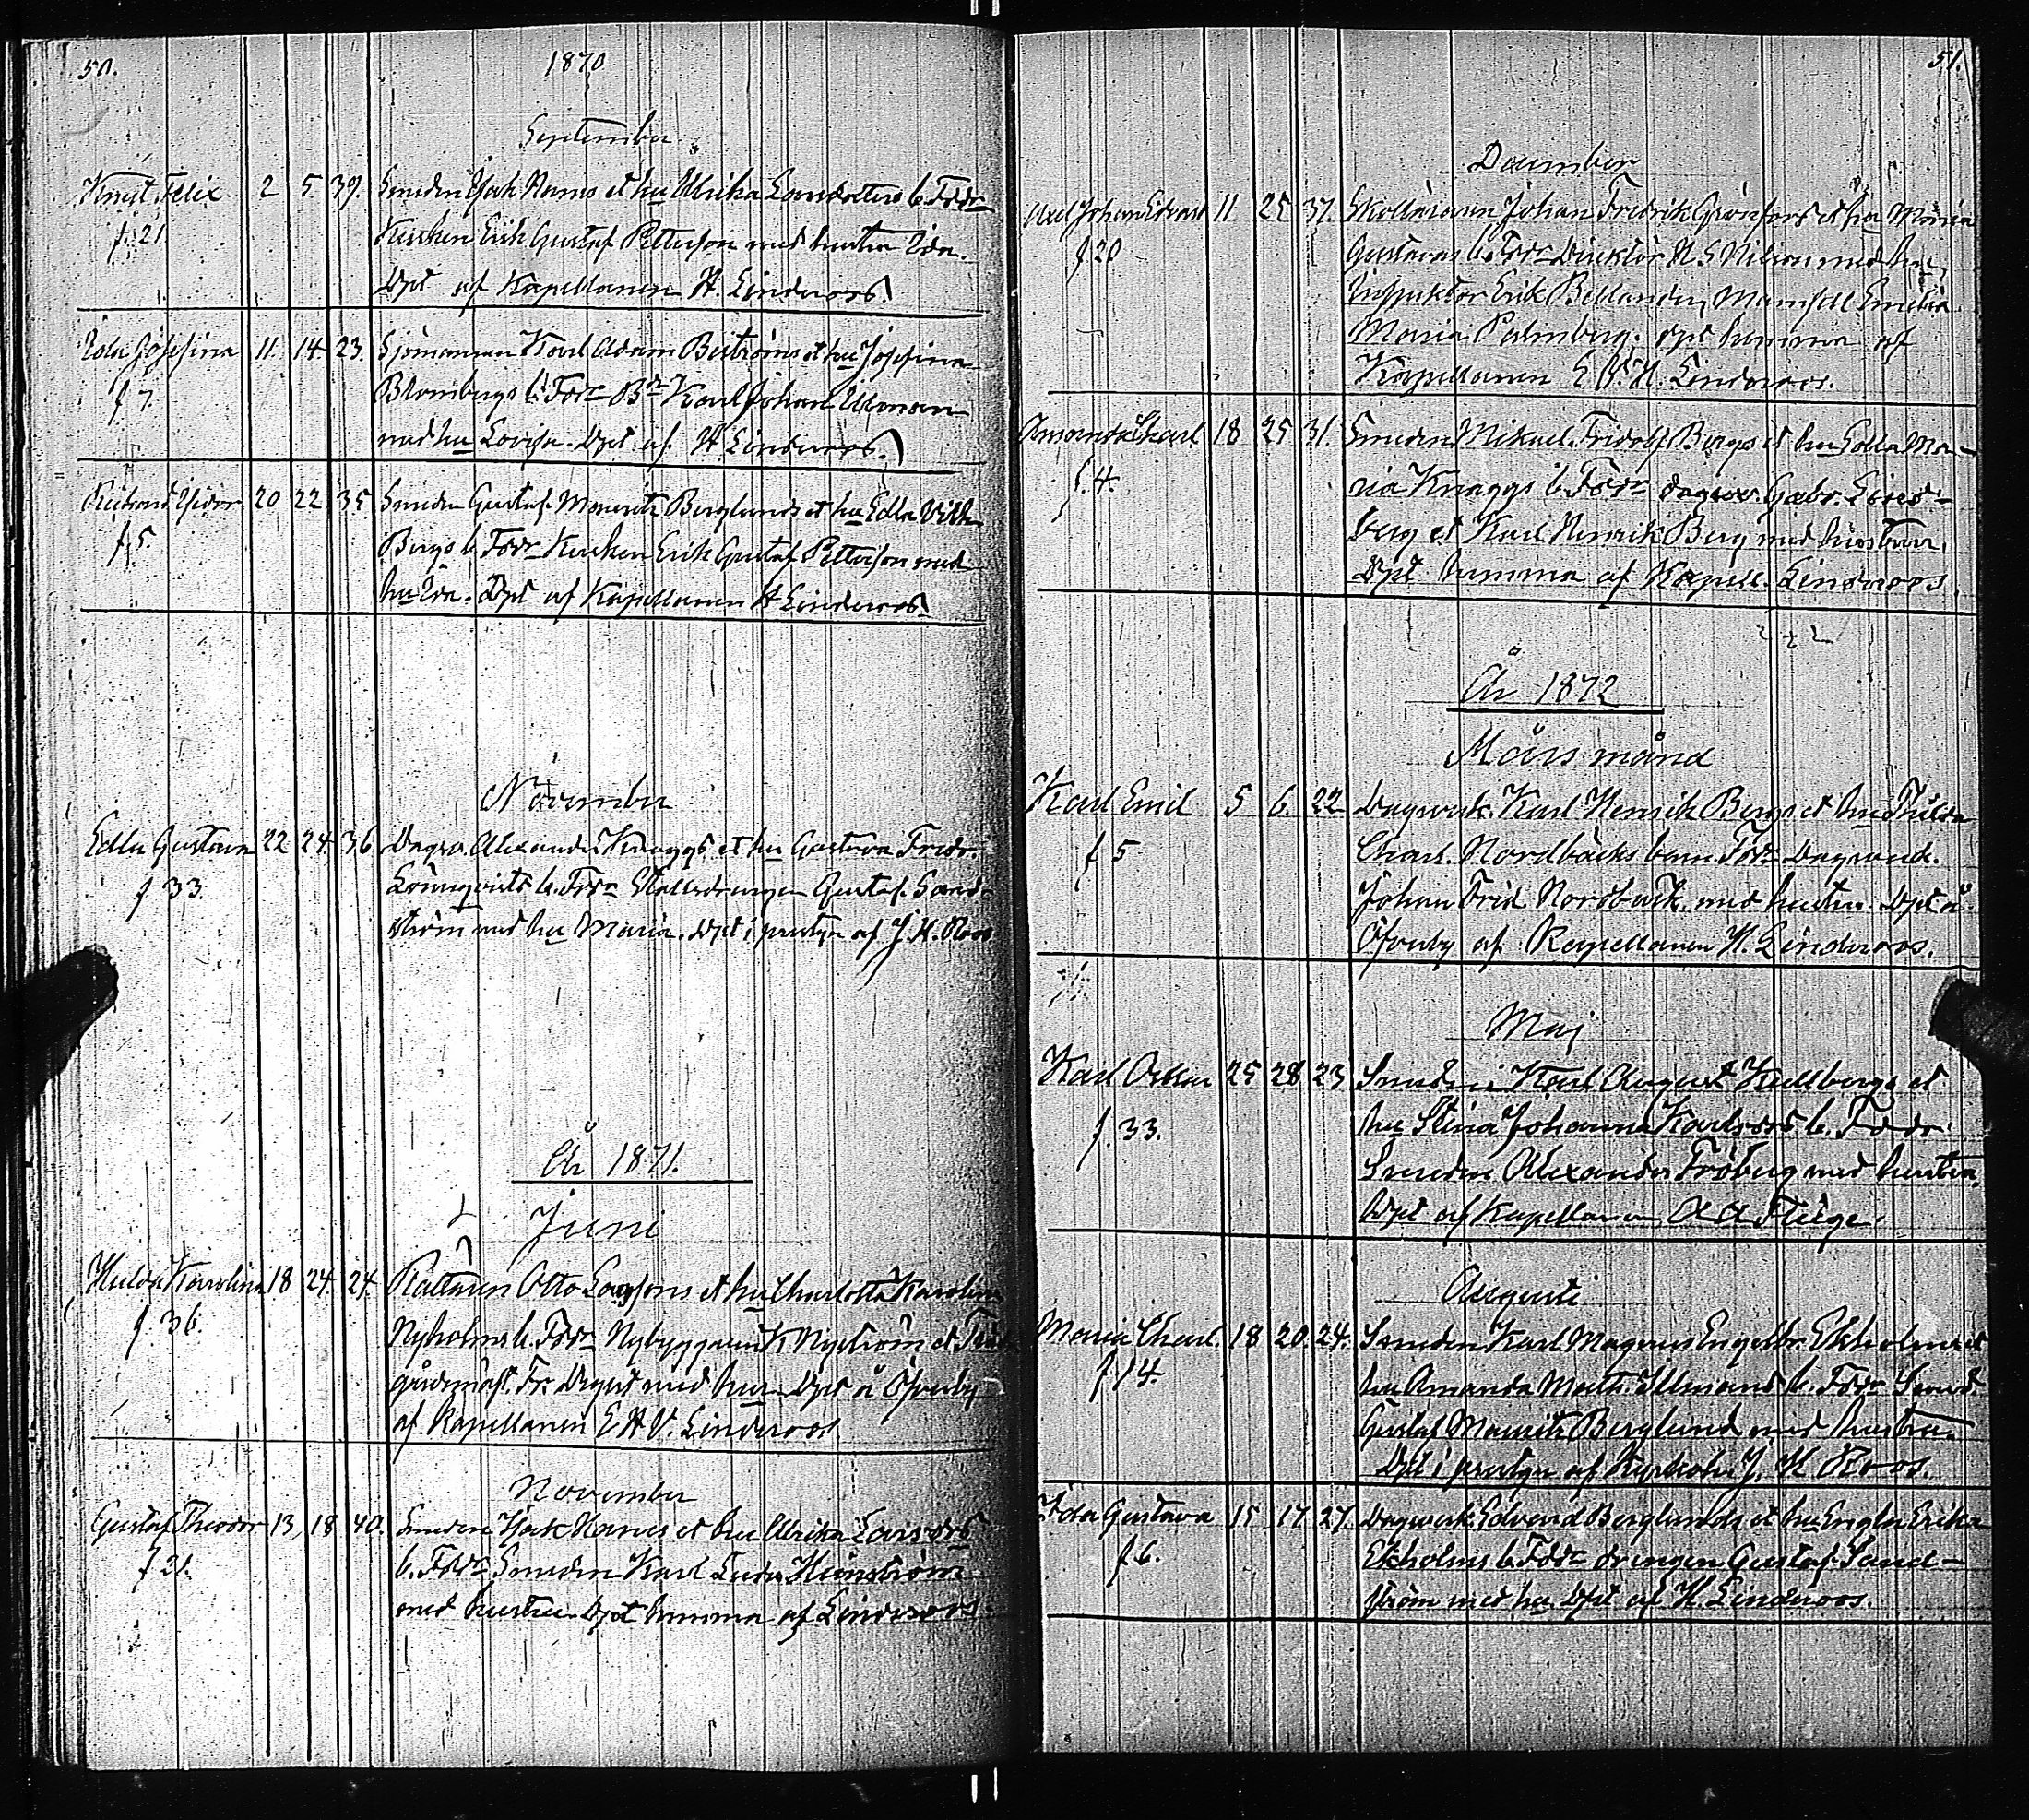 50.
1870
September
Knut Felix 2 5 39. Smeden Isak Hanns et hu Ulrika b. Fadr
f. 21 Kusken Erik Gustaf Petterson med hustru Ida.
Dpt af Kapellanen H. Lindroos
Ida Josefina 11. 14 23. Sjömannen Karl Adam et hu Josefina
f 7. Blombergs b. Fadr Karl Johan
med hu Lovisa. Dpt af H Lindroos.
Richard Isidor 20 22 35 Smeden Gustaf Mauritz Berglunds et hu Edla Vilh
f. 5 Bergs b. Fadr Kusken Erik Gustaf Petterson med
hu Ida. Dpt af Kapellanen H Lindroos
November
Edla Gustava 22 24 36 Dagsv. Alexander Knaggs et hu Gustava Fredr.
f 33. Lönnqvists b. Fadr Stalldrengen Gustaf Sand-
ström med hu Maria. Dpt i af J. H. Roos
År 1871.
Juni
Hulda Karolina 18 24. 24. Otto et hu Charlotta Karolina
f 36. Nyholms b. Fadr Nybyggaren K Nyström et
gårdsmäst. Fr. med hu Dpt å Öfverby
af Kapellanen E H V. Lindroos
November
Gustaf Theodor 13, 18 40. Smeden Isak Hanns et hu Ulrika
f 21. b. Fadr Smeden Karl
med hustru Dpt hemma af Lindroos
51.
December
Axel Johan Edvard 11 25 37. Skolläraren Johan Fredrik Grönfors et hu Maria
f 20 Gustavas b. Fadr Direktör N S Nilson med hu,
Inspektor Erik Mamsell Emelia
Maria Palmberg. Dpt hemma af
Kapellanen E V. H. Lindroos.
Amanda Charl. 18 25 31. Smeden Mikael Fridolf Bergs et hu Edla Ma-
f. 4. ria Knaggs b. Fadr dagsv. Gabr. Lind-
berg et Karl Henrik Berg med hustrur.
Dpt hemma af Kapell. Lindroos
År 1872
Mars månd
Karl Emil 5 6. 22 Dagsverk. Karl Henrik Bergs et hu
f 5 Charl. Nordbäcks barn. Fadr Dagsverk.
Johan Frid Nordbäck med hustru. Dpt å
Öfverby af Kapellanen H. Lindroos.
Maj
Karl Oskar 25 28 23 Smeden Karl August Kullbergs et
f. 33. hu Stina Johanna b. Fadr.
Smeden Alexander Fröberg med hustru.
Dpt af Kapellanen
Augusti
Maria Charl. 18 20. 24. Smeden Karl Magnus Engelbr. Ekholms et
f 14. hu Amanda Math. b. Fadr Smed.
Gustaf Mauritz Berglund med hustru.
Dpt i af J. H Roos.
Ida Gustava 15 17 27. Dagsverk Edvard Berglunds et hu Engla Erika
f 6. Ekholms b. Fadr drengen Gustaf Sand-
ström med hu Dpt af H. Lindroos.